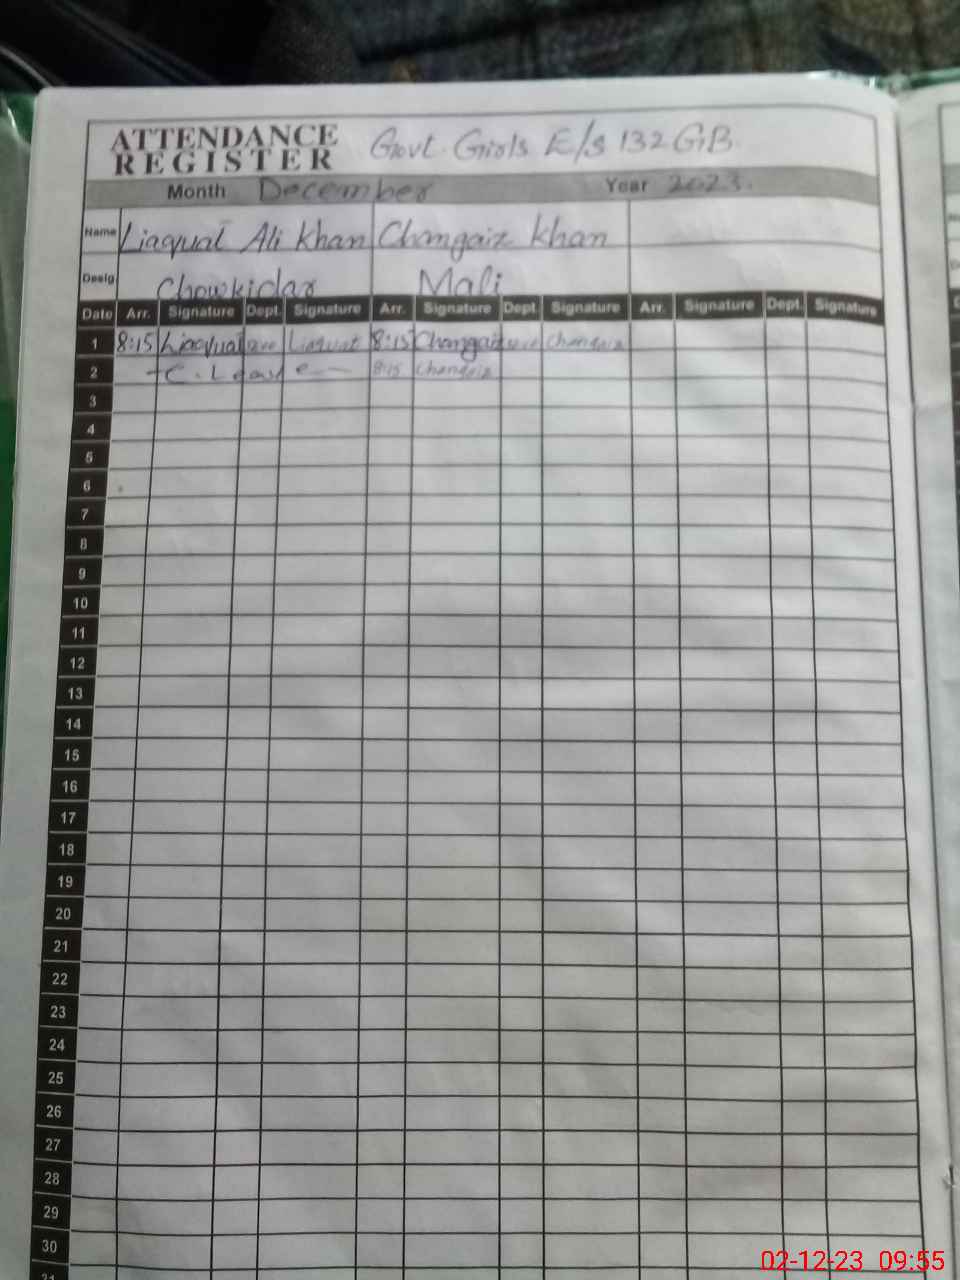 ATTENDANCE REGISTER Govt. Girls E/S 132 GB.
Month December Year 2023.
Name Liaqual Ali Khan Changaiz Khan
Desig Chowkidar Mali
Date Arr. Signature Dept. Signature Arr. Signature Dept. Signature Arr. Signature Dept. Signature
1 8:15 Liaqual Liaquat 8:15 Changaiz Changaiz
2 C. Leave 8:15 Changaiz
3
4
5
6
7
8
9
10
11
12
13
14
15
16
17
18
19
20
21
22
23
24
25
26
27
28
29
30
31
02-12-23 09:55